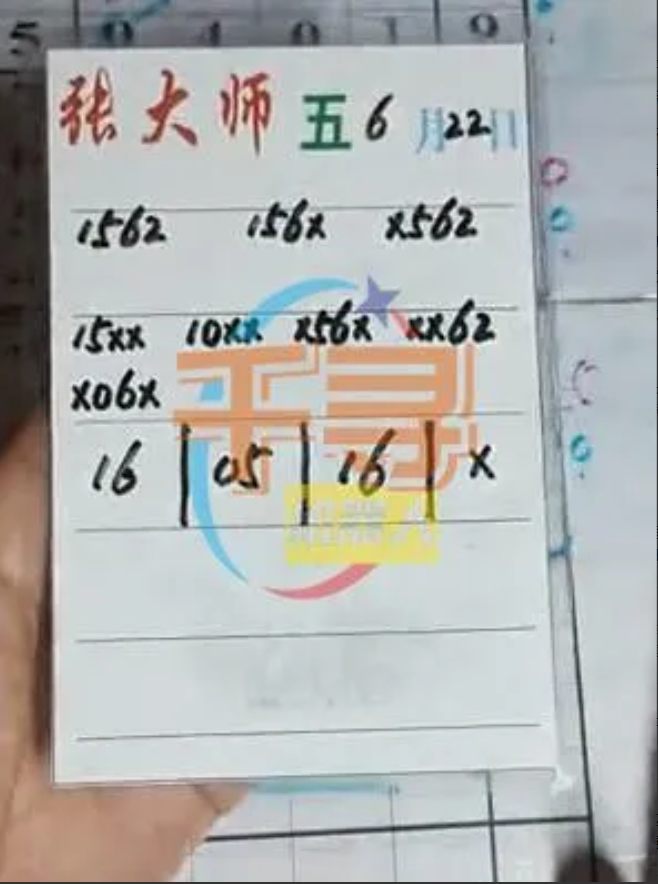 张大师 五 6月22日
1562 156x x562
15xx 10xx x56x xx62
x06x
16 | 05 | 16 | x
千寻